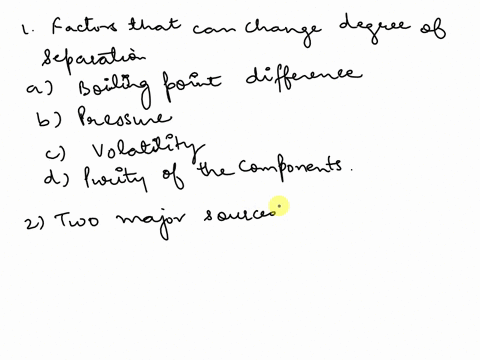 1. Factors that can change degree of
separation
a) Boiling point difference
b) Pressure
c) Volatility
d) Purity of the components.
2) Two major sources